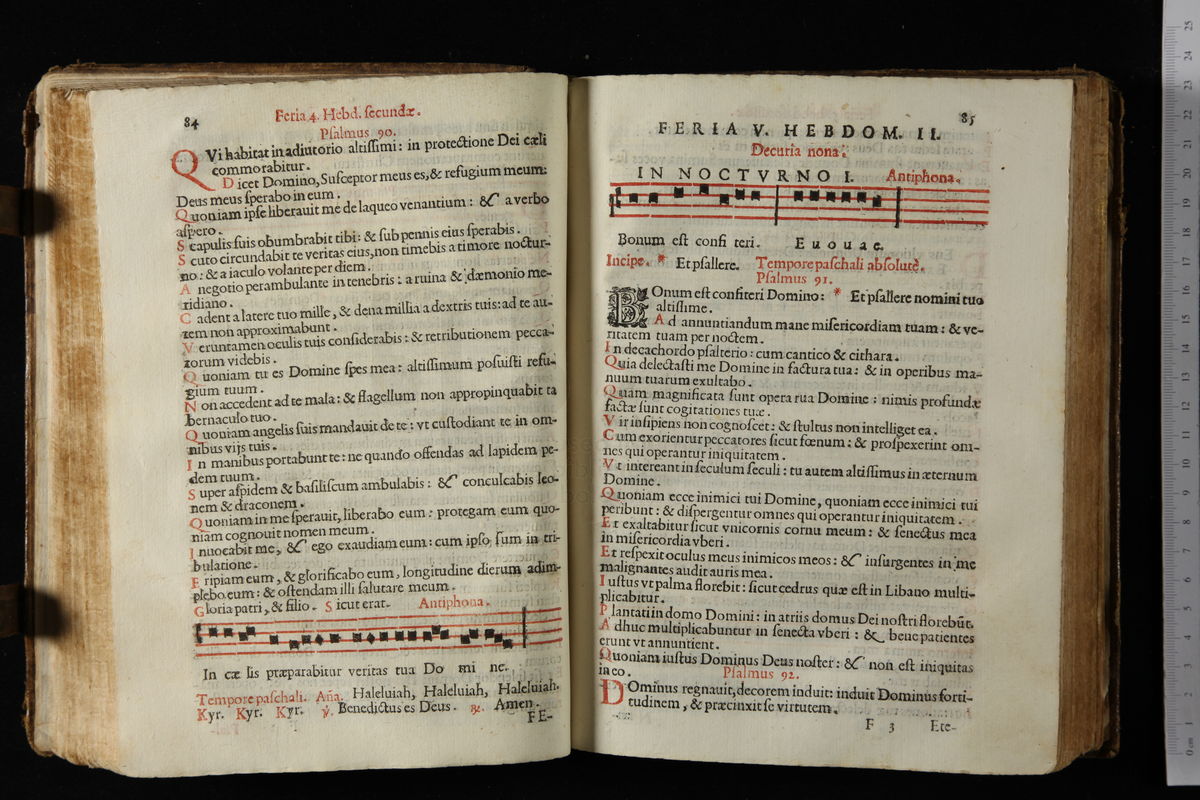 84
Feria 4. Hebd. secundæ.
Psalmus 90.
QVi habitat in adiutorio altissimi: in protectione Dei cæli
commorabitur.
Dicet Domino, Susceptor meus es, & refugium meum:
Deus meus sperabo in eum.
Quoniam ipse liberauit me de laqueo venantium: & a verbo
aspero.
Scapulis suis obumbrabit tibi: & sub pennis eius sperabis.
Scuto circundabit te veritas eius, non timebis a timore noctur-
no: & a iaculo volante per diem.
A negotio perambulante in tenebris: a ruina & dæmonio me-
ridiano.
Cadent a latere tuo mille, & dena millia a dextris tuis: ad te au-
tem non approximabunt.
Veruntamen oculis tuis considerabis: & retributionem pecca-
torum videbis.
Quoniam tu es Domine spes mea: altissimum posuisti refu-
gium tuum.
Non accedent ad te mala: & flagellum non appropinquabit ta
bernaculo tuo.
Quoniam angelis suis mandauit de te: vt custodiant te in om-
nibus vijs tuis.
In manibus portabunt te: ne quando offendas ad lapidem pe-
dem tuum.
Super aspidem & basiliscum ambulabis: & conculcabis leo-
nem & draconem.
Quoniam in me sperauit, liberabo eum: protegam eum quo-
niam cognouit nomen meum.
Inuocabit me, & ego exaudiam eum: cum ipso sum in tri-
bulatione.
Eripiam eum, & glorificabo eum, longitudine dierum adim-
plebo eum: & ostendam illi salutare meum.
Gloria patri, & filio. Sicut erat. Antiphona.
In cæ lis præparabitur veritas tua Do mi ne.
Tempore paschali. Aña. Haleluiah, Haleluiah, Haleluiah.
Kyr. Kyr. Kyr. ℣. Benedictus es Deus. ℟. Amen.
FE-
85
FERIA V. HEBDOM. II.
Decuria nona.
IN NOCTVRNO I. Antiphona.
Bonum est confi teri. Euouae.
Incipe. * Et psallere. Tempore paschali absolutè.
Psalmus 91.
BOnum est confiteri Domino: * Et psallere nomini tuo
altissime.
Ad annuntiandum mane misericordiam tuam: & ve-
ritatem tuam per noctem.
In decachordo psalterio: cum cantico & cithara.
Quia delectasti me Domine in factura tua: & in operibus ma-
nuum tuarum exultabo.
Quam magnificata sunt opera tua Domine: nimis profundæ
factæ sunt cogitationes tuæ.
Vir insipiens non cognoscet: & stultus non intelliget ea.
Cum exorientur peccatores sicut fœnum: & prospexerint om-
nes qui operantur iniquitatem.
Vt intereant in seculum seculi: tu autem altissimus in æternum
Domine.
Quoniam ecce inimici tui Domine, quoniam ecce inimici tui
peribunt: & dispergentur omnes qui operantur iniquitatem.
Et exaltabitur sicut vnicornis cornu meum: & senectus mea
in misericordia vberi.
Et respexit oculus meus inimicos meos: & insurgentes in me
malignantes audit auris mea.
Iustus vt palma florebit: sicut cedrus quæ est in Libano multi-
plicabitur.
Plantati in domo Domini: in atriis domus Dei nostri florebūt.
Adhuc multiplicabuntur in senecta vberi: & bene patientes
erunt vt annuntient.
Quoniam iustus Dominus Deus noster: & non est iniquitas
in eo. Psalmus 92.
DOminus regnauit, decorem induit: induit Dominus forti-
tudinem, & præcinxit se virtutem.
F 3 Ete-